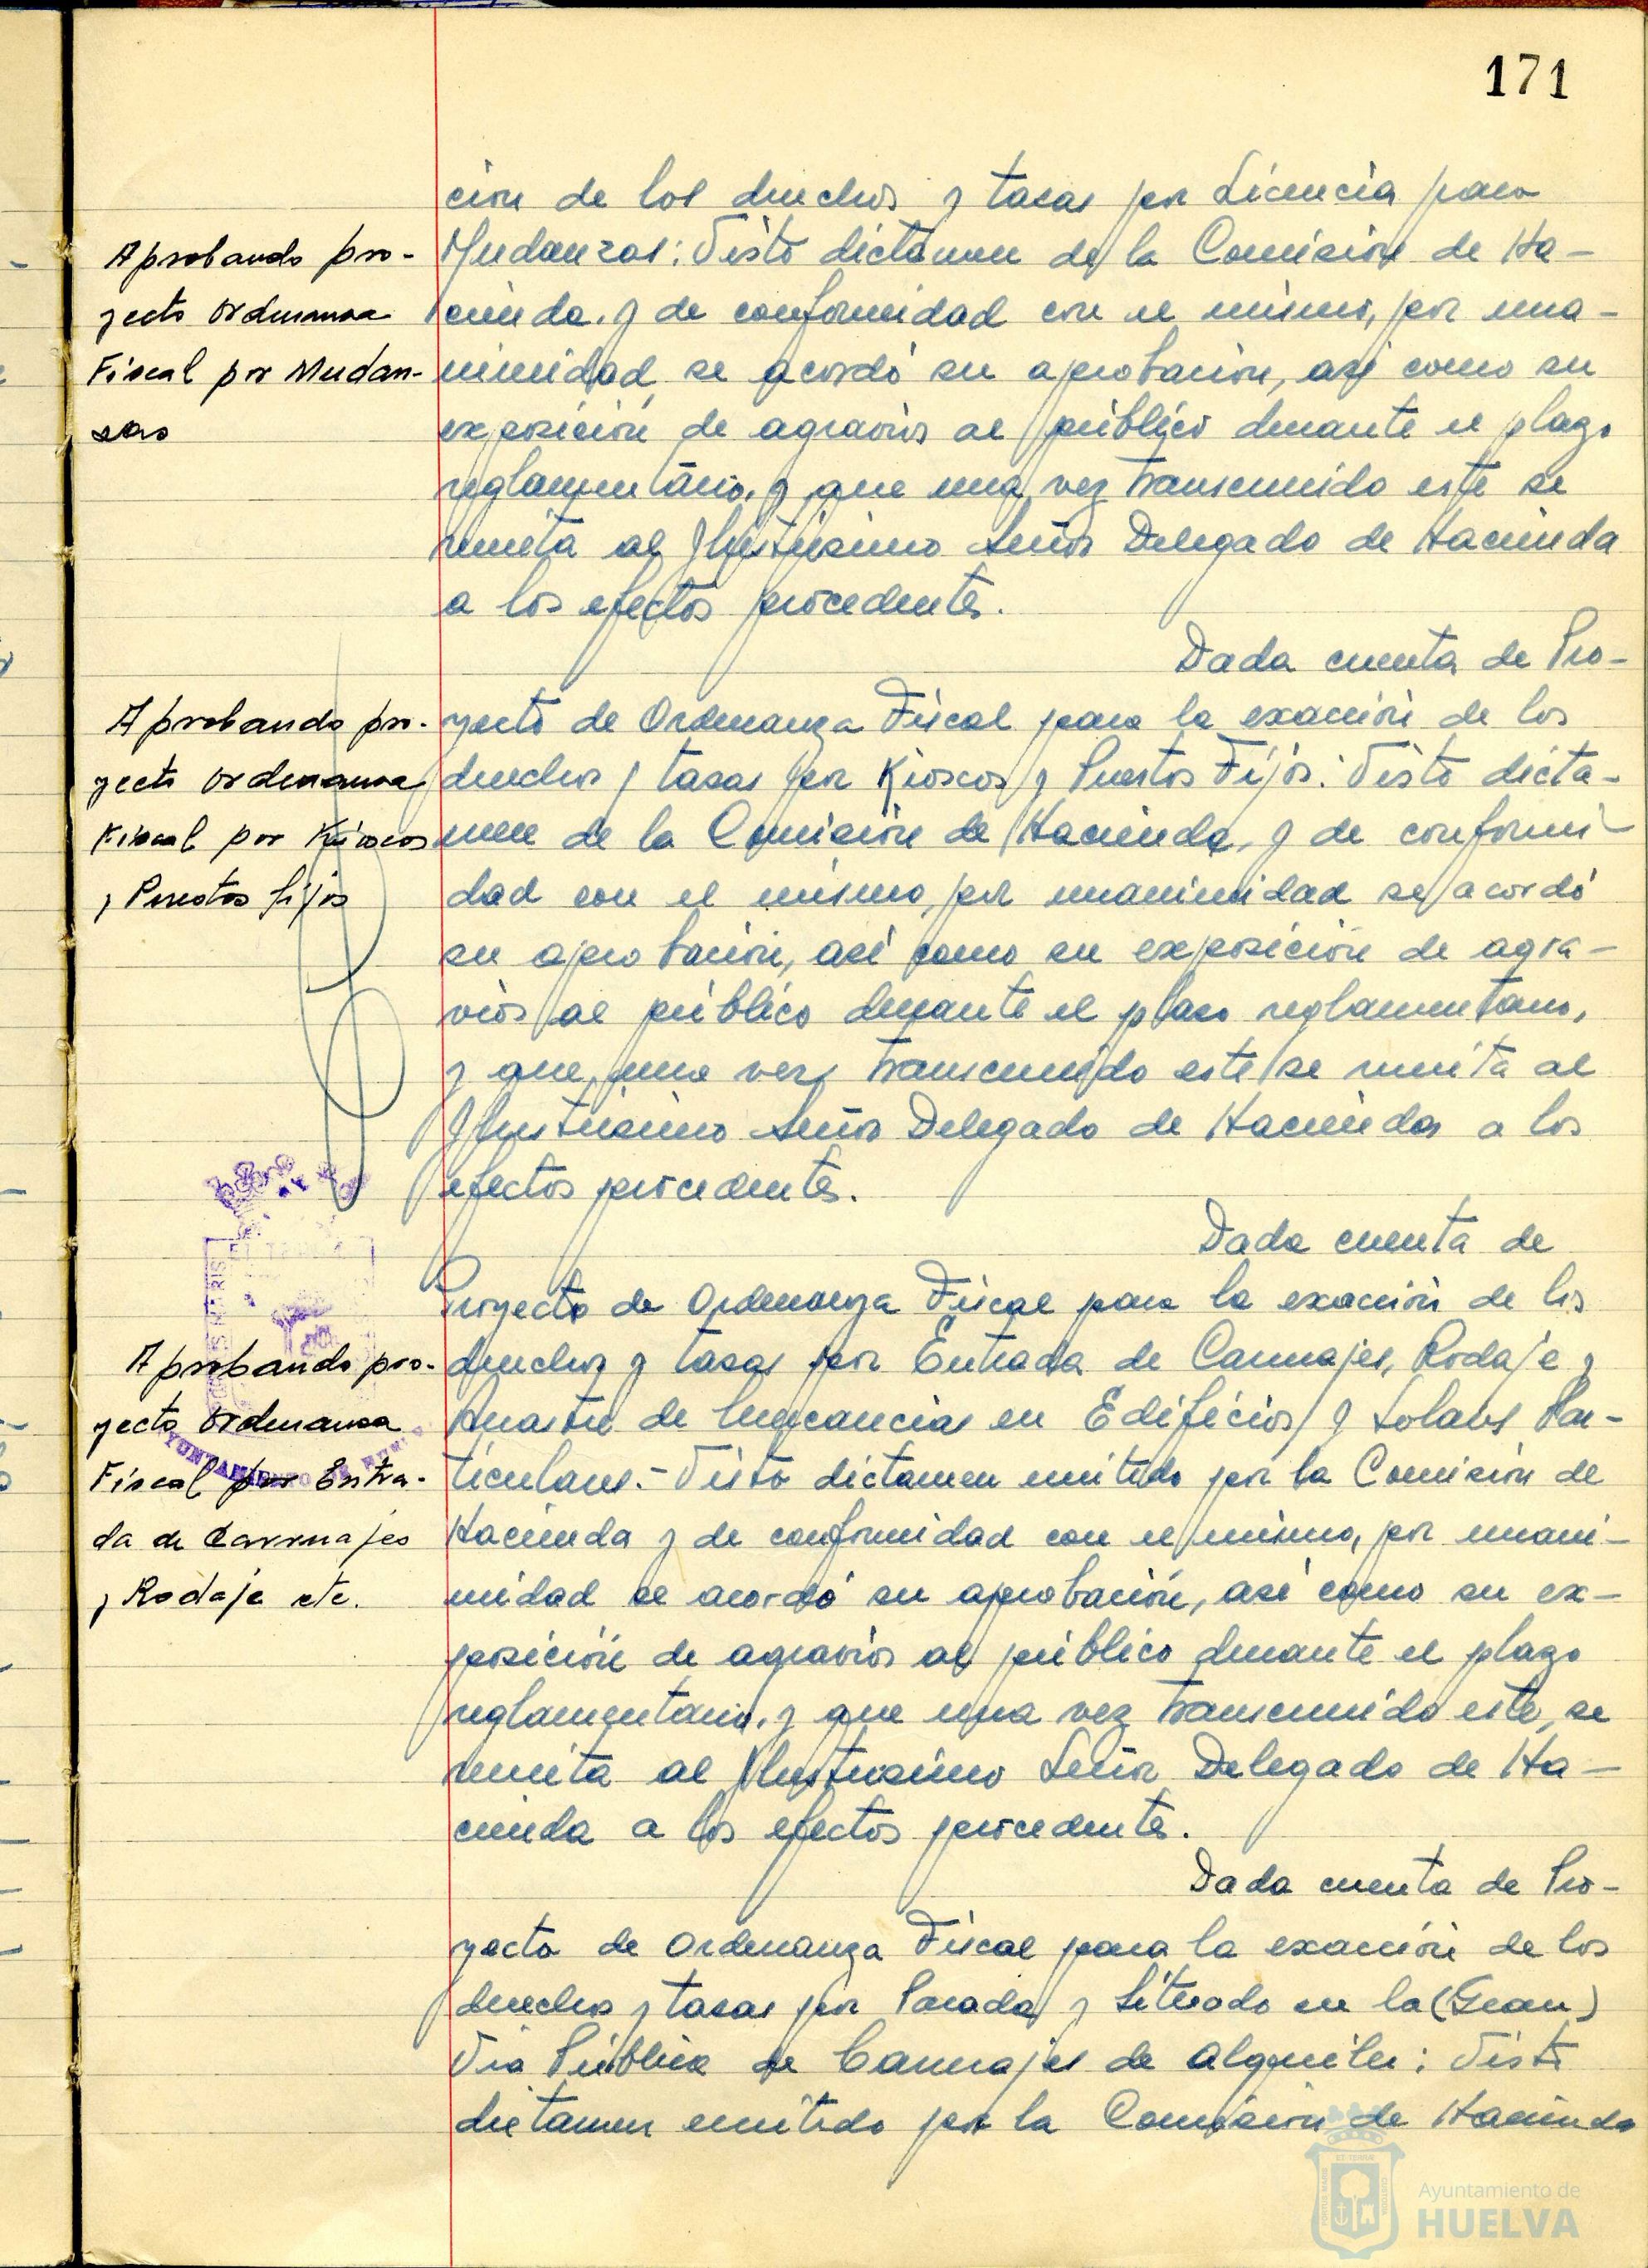 171
ción de los derechos y tasas por Licencia para
Aprobando pro-
yecto Ordenanza
Fiscal por Mudan-
zas
Mudanzas: Visto dictamen de la Comisión de Ha-
cienda, y de conformidad con el mismo, por una-
nimidad se acordó su aprobación, así como su
exposición de agravios al público durante el plazo
reglamentario, y que una vez transcurrido este se
remita al Ilustrísimo Señor Delegado de Hacienda
a los efectos procedentes.
Dada cuenta de Pro-
Aprobando pro-
yecto Ordenanza
Fiscal por Kioscos
y Puestos fijos
yecto de Ordenanza Fiscal para la exacción de los
derechos y tasas por Kioscos y Puestos Fijos: Visto dicta-
men de la Comisión de Hacienda, y de conformi-
dad con el mismo, por unanimidad se acordó
su aprobación, así como su exposición de agra-
vios al público durante el plazo reglamentario,
y que una vez transcurrido este se remita al
Ilustrísimo Señor Delegado de Hacienda a los
efectos procedentes.
Dada cuenta de
Proyecto de Ordenanza Fiscal para la exacción de los
Aprobando pro-
yecto Ordenanza
Fiscal por Entra-
da de Carruajes
y Rodaje etc.
derechos y tasas por Entrada de Carruajes, Rodaje y
Arrastre de Mercancias en Edificios y Solares Par-
ticulares.- Visto dictamen emitido por la Comisión de
Hacienda y de conformidad con el mismo, por unani-
midad se acordó su aprobación, así como su ex-
posición de agravios al público durante el plazo
reglamentario, y que una vez transcurrido este, se
remita al Ilustrísimo Señor Delegado de Ha-
cienda a los efectos procedentes.
Dada cuenta de Pro-
yecto de Ordenanza Fiscal para la exacción de los
derechos y tasas por Parada y Situado en la (Gran)
Via Pública de Carruajes de alquiler: Visto
dictamen emitido por la Comisión de Hacienda
AYUNTAMIENTO DE
Ayuntamiento de
HUELVA